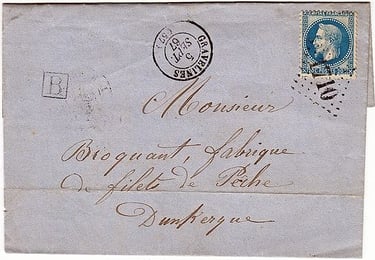 GRAVELINES
5
SEPT.
67
(57)
1710
B
Monsieur
Bioquant, fabrique
de filets de Pêche
Dunkerque